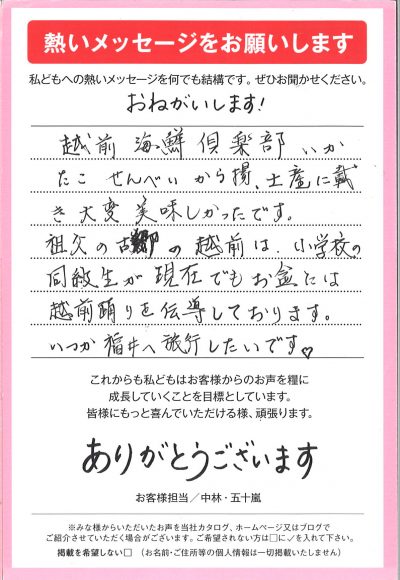 熱いメッセージをお願いします
私どもへの熱いメッセージを何でも結構です。ぜひお聞かせください。
おねがいします!
越前 海鮮倶楽部 いか
たこ せんべい から揚、土産に戴
き大変美味しかったです。
祖父の古郷の越前は、小学校の
同級生が現在でもお盆には
越前踊りを伝導しております。
いつか福井へ旅行したいです♡
これからも私どもはお客様からのお声を糧に
成長していくことを目標としています。
皆様にもっと喜んでいただける様、頑張ります。
ありがとうございます
お客様担当/中林・五十嵐
※みな様からいただいたお声を当社カタログ、ホームページ又はブログで
ご紹介させていただく場合がございます。ご希望されない方は□に✓を入れて下さい。
掲載を希望しない□ (お名前・ご住所等の個人情報は一切掲載いたしません)